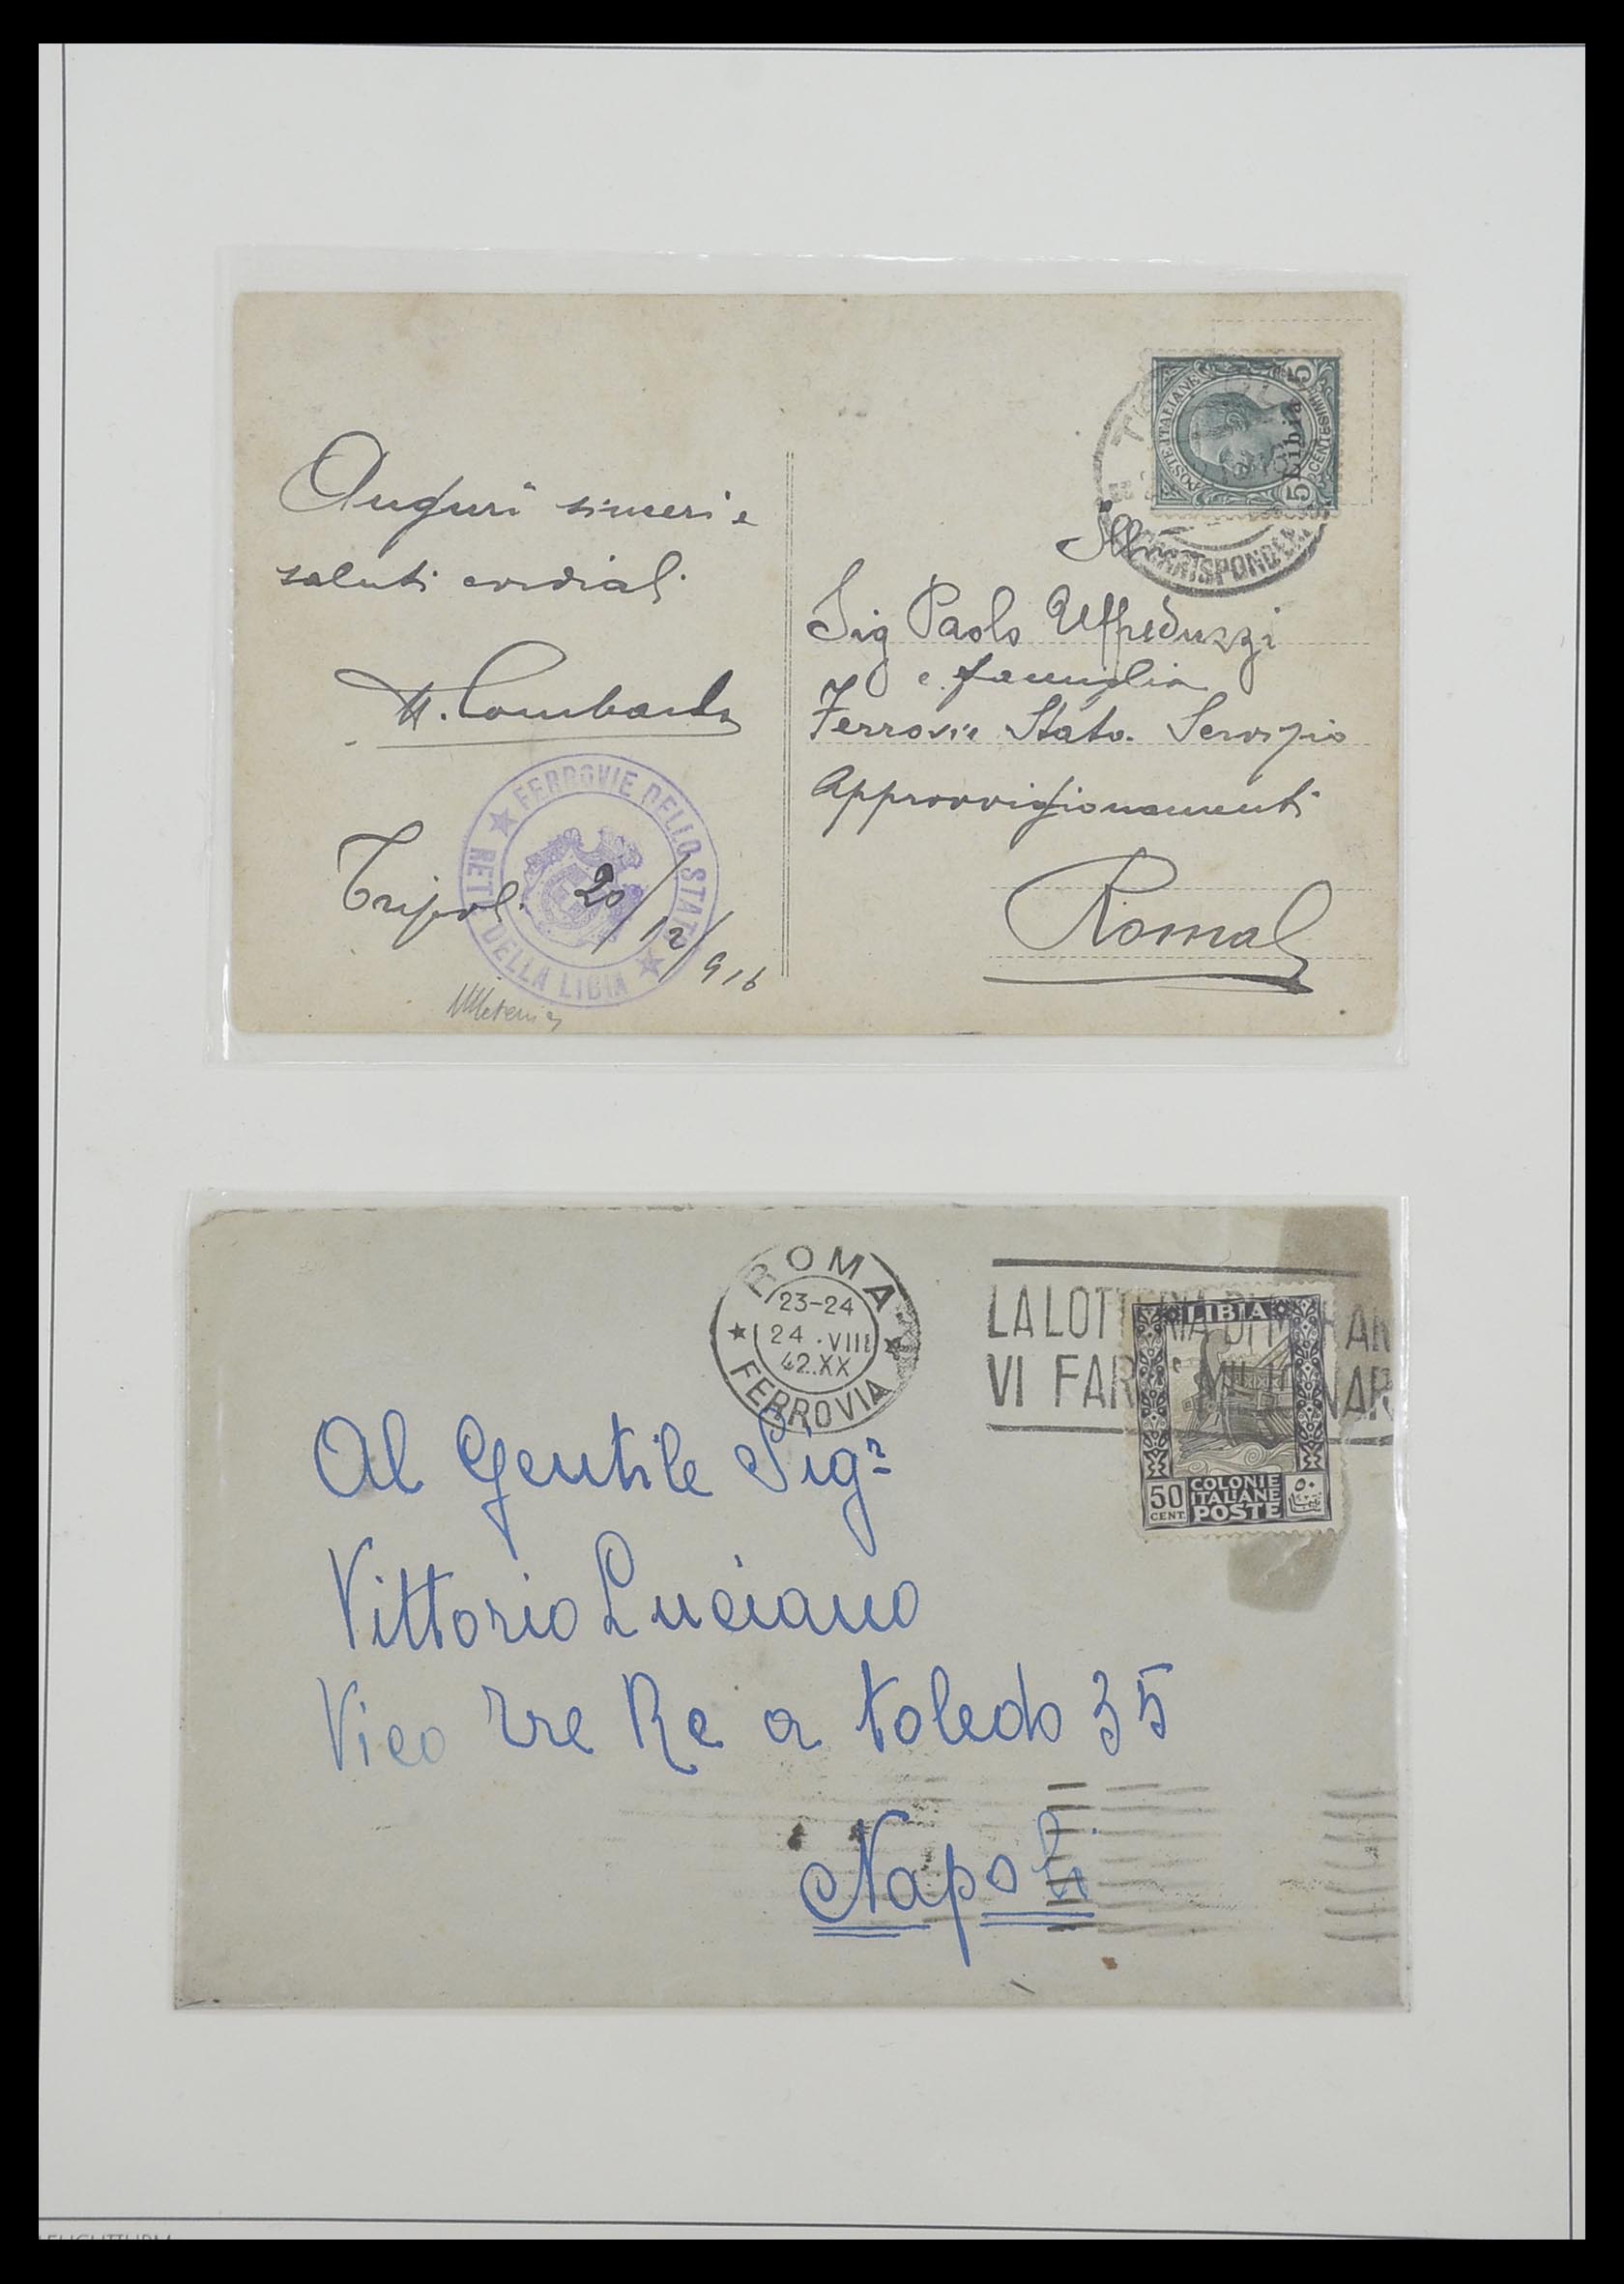 POSTE ITALIANE
5 Libia 5
CENTESIMI
CORRISPONDEN
Auguri sinceri e
saluti cordiali
Lombardi
FERROVIE DELLO STATO
RETE DELLA LIBIA
Tripoli 20/12/916
Sig Paolo Uffreduzzi
e famiglia
Ferrovie Stato. Servizio
Approvvigionamenti
Roma
ROMA
23-24
24.VIII
42.XX
FERROVIA
LA LOTTERIA DI M
VI FAR
LIBIA
50
CENT.
COLONIE
ITALIANE
POSTE
Al Gentile Sigr
Vittorio Luciano
Vico Tre Re a Toledo 35
Napoli